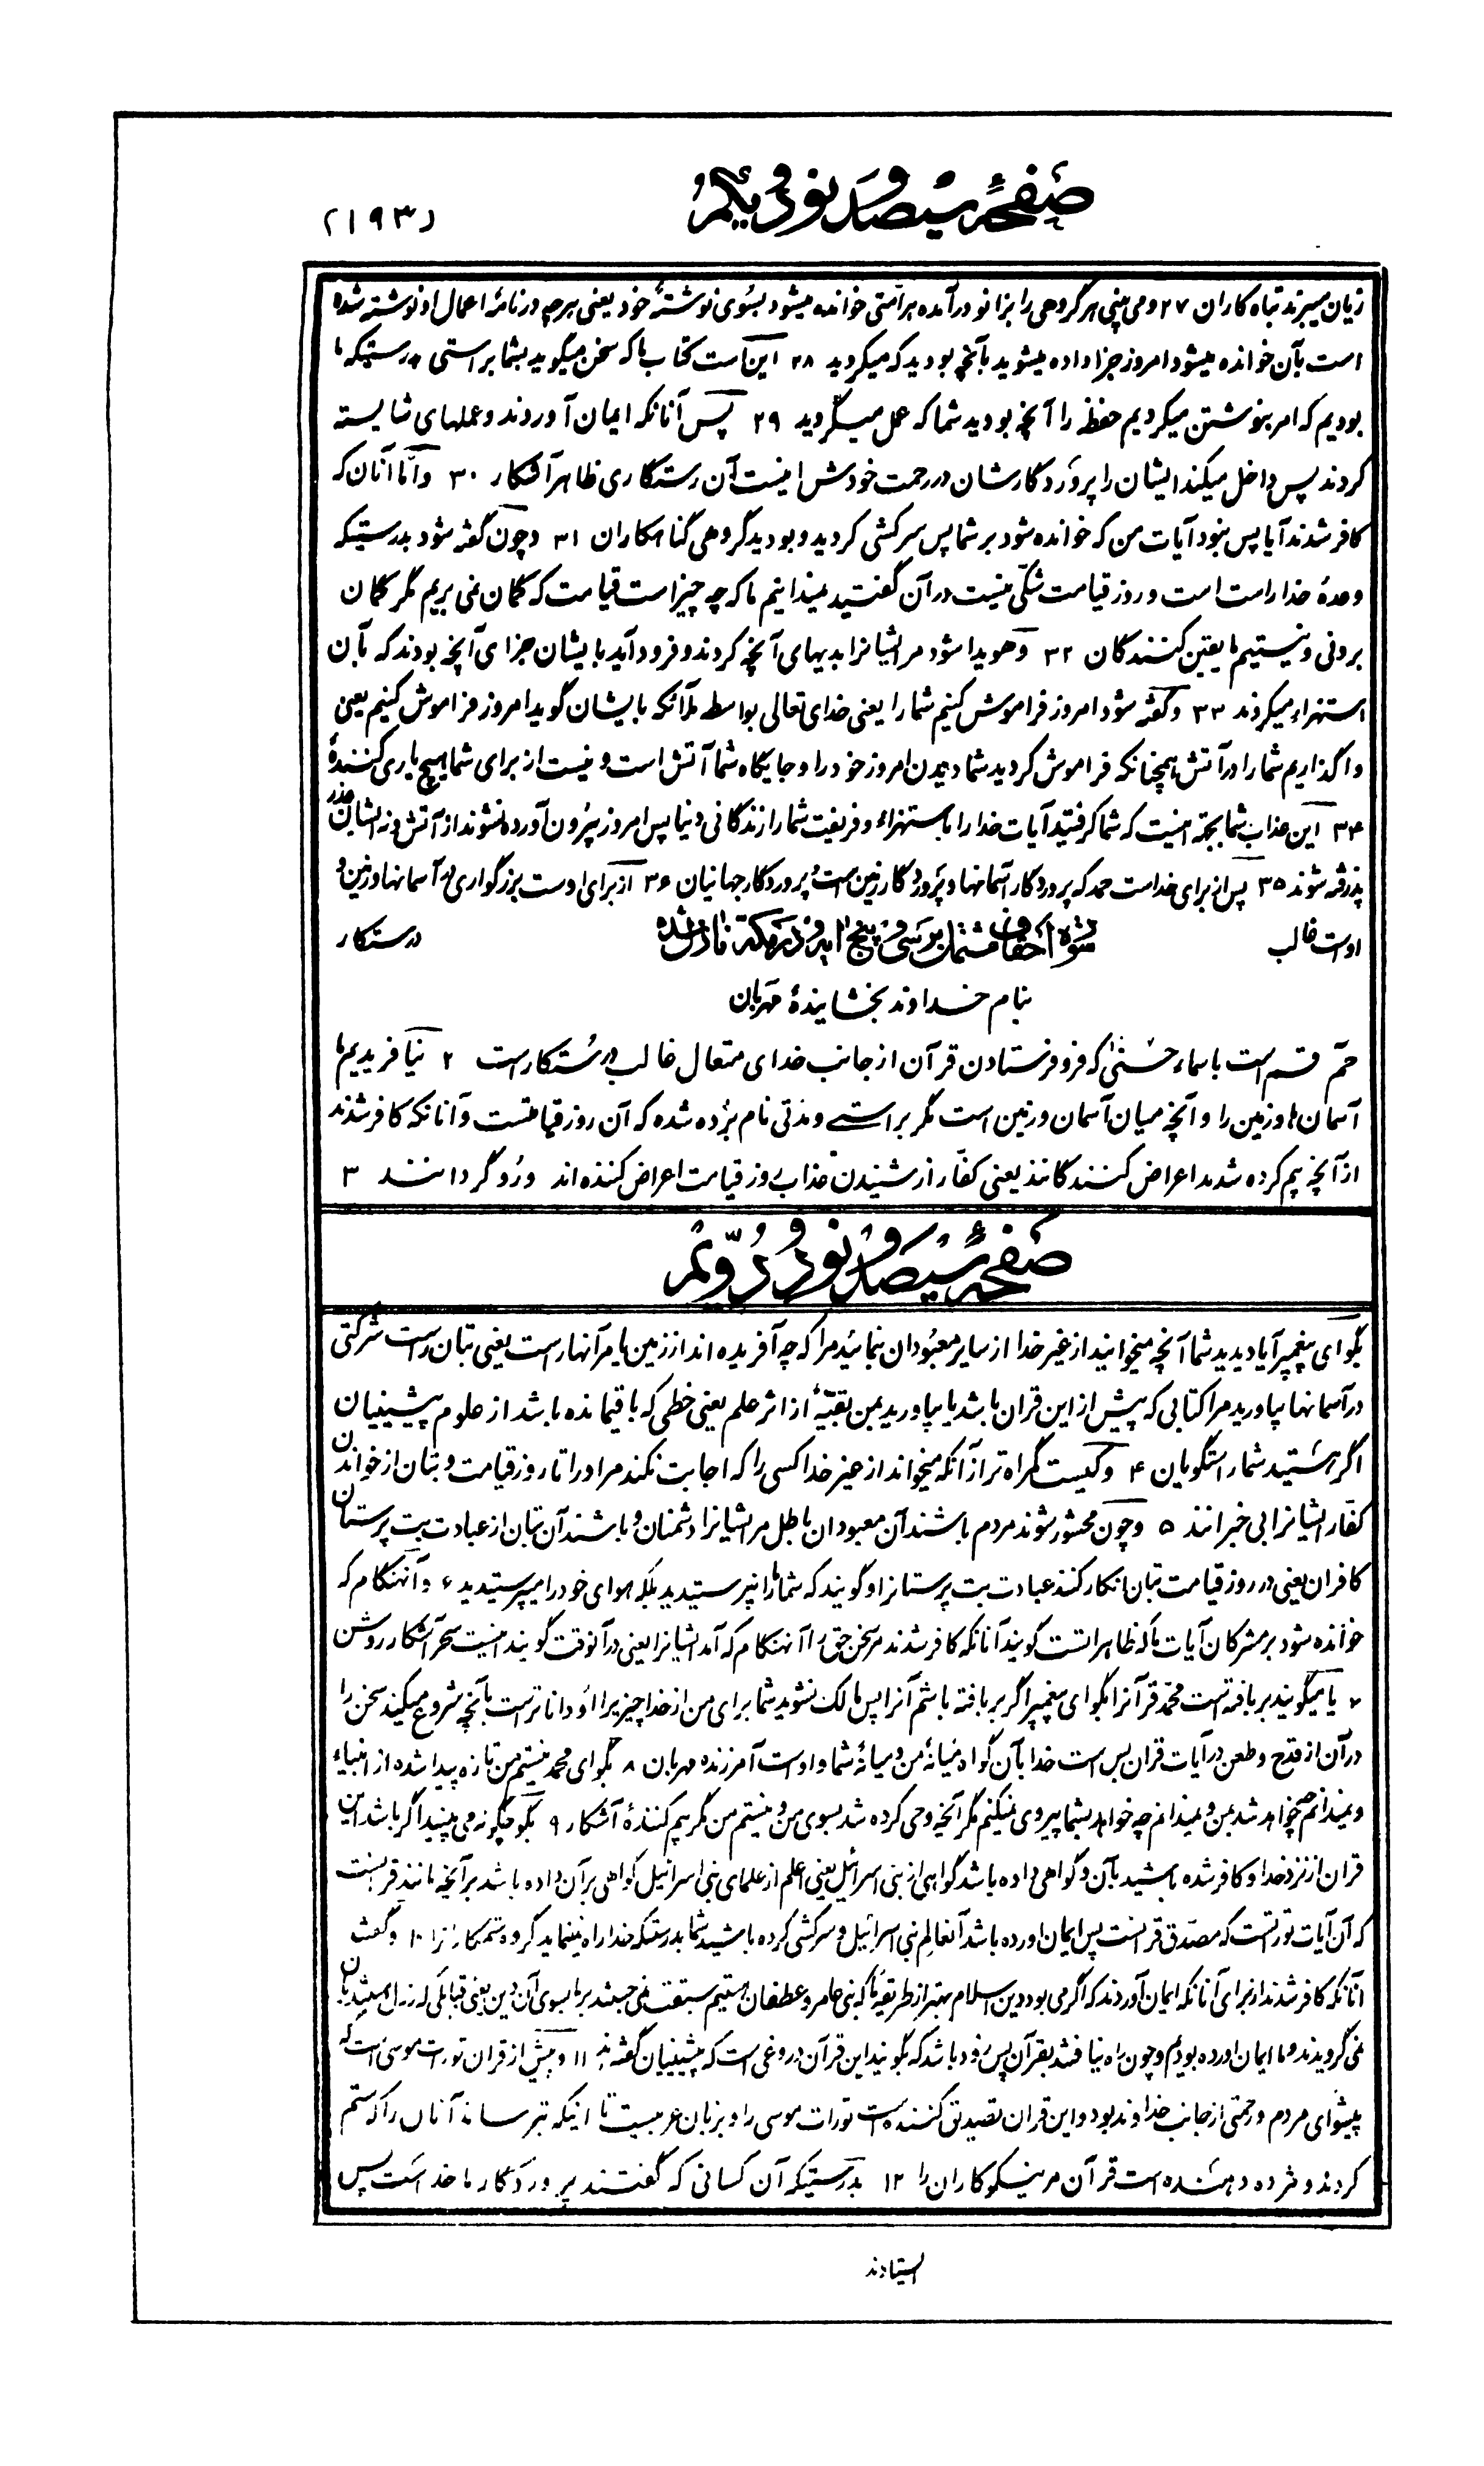 صفحهٔ سیصد و نود و یکم
(۱۹۳)
زیان میبرند تباه کاران ۲۷ و می بینی هر گروهی را بزانو درآمده هر امّتی خوانده میشود بسُوی نوشتهٔ خود یعنی هرچه در نامهٔ اعمال او نوشته شده
است بآن خوانده میشود امروز جزا داده میشوید بآنچه بودید که میکردید ۲۸ این است کتاب ما که سخن میگوید بشما براستی بدرستیکه ما
بودیم که امر بنوشتن میکردیم حفظه را آنچه بودید شما که عمل میکردید ۲۹ پس آنانکه ایمان آوردند و عملهای شایسته
کردند پس داخل میکند ایشان را پروَردگارشان در رحمت خودش اینست آن رستگاری ظاهر آشکار ۳۰ و امّا آنان که
کافر شدند آیا پس نبود آیات من که خوانده شود بر شما پس سرکشی کردید و بودید گروهی گناهکاران ۳۱ و چون گفته شود بدرستیکه
وعدهٔ خدا راست است و روز قیامت شکّی نیست در آن گفتید نمیدانیم ما که چه چیز است قیامت که گمان نمی بریم مگر گمان
بردنی و نیستیم ما یقین کنندگان ۳۲ و هویدا شود مر ایشانرا بدیهای آنچه کردند و فرود آید بایشان جزای آنچه بودند که بآن
استهزاء میکردند ۳۳ و گفته شود امروز فراموش کنیم شما را یعنی خدای تعالی بواسطه ملائکه بایشان گوید امروز فراموش کنیم یعنی
واگذاریم شما را در آتش همچنانکه فراموش کردید شما دیدن امروز خود را و جایگاه شما آتش است و نیست از برای شما هیچ یاری کنندهٔ
۳۴ این عذاب شما بجهة اینست که شما گرفتید آیات خدا را باستهزاء و فریفت شما را زندگانی دنیا پس امروز بیرون آورده نشوند از آتش و نه ایشان عذر
پذرفته شوند ۳۵ پس از برای خداست حمد که پروردگار آسمانها و پَروردگار زمین است پروردگار جهانیان ۳۶ از برای اوست بزرگواری در آسمانها و زمین و
اوست غالب
سورهٔ احقاف مشتمل بر سی و پنج آیه و در مکه نازل شده
درستکار
بنام خداوند بخشایندهٔ مهربان
حٓم قسم است باسماء حسنیٰ که فرو فرستادن قرآن از جانب خدای متعال غالب درستکار است ۲ نیافریدیم ما
آسمان ها و زمین را و آنچه میان آسمان و زمین است مگر براستے و مدّتی نام برده شده که آن روز قیامتست و آنانکه کافر شدند
از آنچه بیم کرده شدند اعراض کنندگانند یعنی کفّار از شنیدن عذاب روز قیامت اعراض کننده اند و رُو گردانند ۳
صفحهٔ سیصد و نود و دوّیم
بگو ای پیغمبر آیا دیدید شما آنچه میخوانید از غیر خدا از سایر معبُودان بنمائید مرا که چه آفریده اند از زمین یا مر آنهار است یعنی بتان راست شرکتی
در آسمانها بیاورید مرا کتابی که پیش از این قران باشد یا بیاورید بمن بقیّهٔ از اثر علم یعنی خطی که باقیمانده باشد از علوم پیشینیان
اگر هستید شما راستگویان ۴ و کیست گمراه تر از آنکه میخواند از غیر خدا کسی را که اجابت نکند مر او را تا روز قیامت و بتان از خواندن
کفّار ایشانرا بی خبرانند ۵ و چون محشور شوند مردم باشند آن معبودان باطل مر ایشانرا دشمنان و باشند آن بتان از عبادت بت پرستان
کافران یعنی در روز قیامت بتان انکار کنند عبادت بت پرستانرا و گویند که شما ما را نپرستیدید بلکه هوای خود را میپرستیدید ۶ و آنهنگام که
خوانده شود بر مشرکان آیات ما که ظاهر است گویند آنانکه کافر شدند مر سخن حق را آنهنگام که آمد ایشانرا یعنی در آنوقت گویند اینست سحر آشکار روشن
۷ یا میگویند بربافته است محمّد قرآنرا بگو ای پیغمبر اگر بربافته باشم آنرا پس مالک نشوید شما برای من از خدا چیزیرا او داناتر است بآنچه شروع میکنید سخن را
در آن از قدح و طعن در آیات قران بس است خدا بآن گواه میانهٔ من و میانهٔ شما و اوست آمرزنده مهربان ۸ بگو ای محمد نیستم من تازه پیدا شده از انبیاء
و نمیدانم چه خواهد شد بمن و نمیدانم چه خواهد بشما پیروی نمیکنم مگر آنچه وحی کرده شد بسوی من و نیستم من مگر بیم کنندهٔ آشکار ۹ بگو چگونه می بینید اگر باشد این
قران از نزد خدا و کافر شده باشید بآن و گواهی داده باشد گواهی از بنی اسرائیل یعنی اعلم از علمای بنی اسرائیل گواهی بر آن داده باشد بر آنچه مانند قرانست
که آن آیات توراتست که مصدّق قرانست پس ایمان اورده باشد آنعالم بنی اسرائیل و سرکشی کرده باشید شما بدرستیکه خدا راه نینماید گروه ستمکارانرا ۱۰ و گفتند
آنانکه کافر شدند از برای آنانکه ایمان آوردند که اگر می بود دین اسلام بهتر از طریقهٔ ما که بنی عامر و غطفان هستیم سبقت نمی جستند بر ما بسوی آن دین یعنی قبایلی که
نمی گرویدند و ما ایمان اورده بودیم و چون راه نیافتند بقرآن پس زود باشد که بگویند این قرآن دروغی است که پیشینیان گفته اند ۱۱ و پیش از قران تورات موسی است که
پیشوای مردم و رحمتی از جانب خداوند بود و این قران تصدیق کننده است تورات موسی را و بزبان عربیست تا اینکه بترساند آنان را که ستم
کردند و مژده دهنده است قرآن مر نیکوکاران را ۱۲ بدرستیکه آن کسانی که گفتند پروردگار ما خداست پس
ایستادند